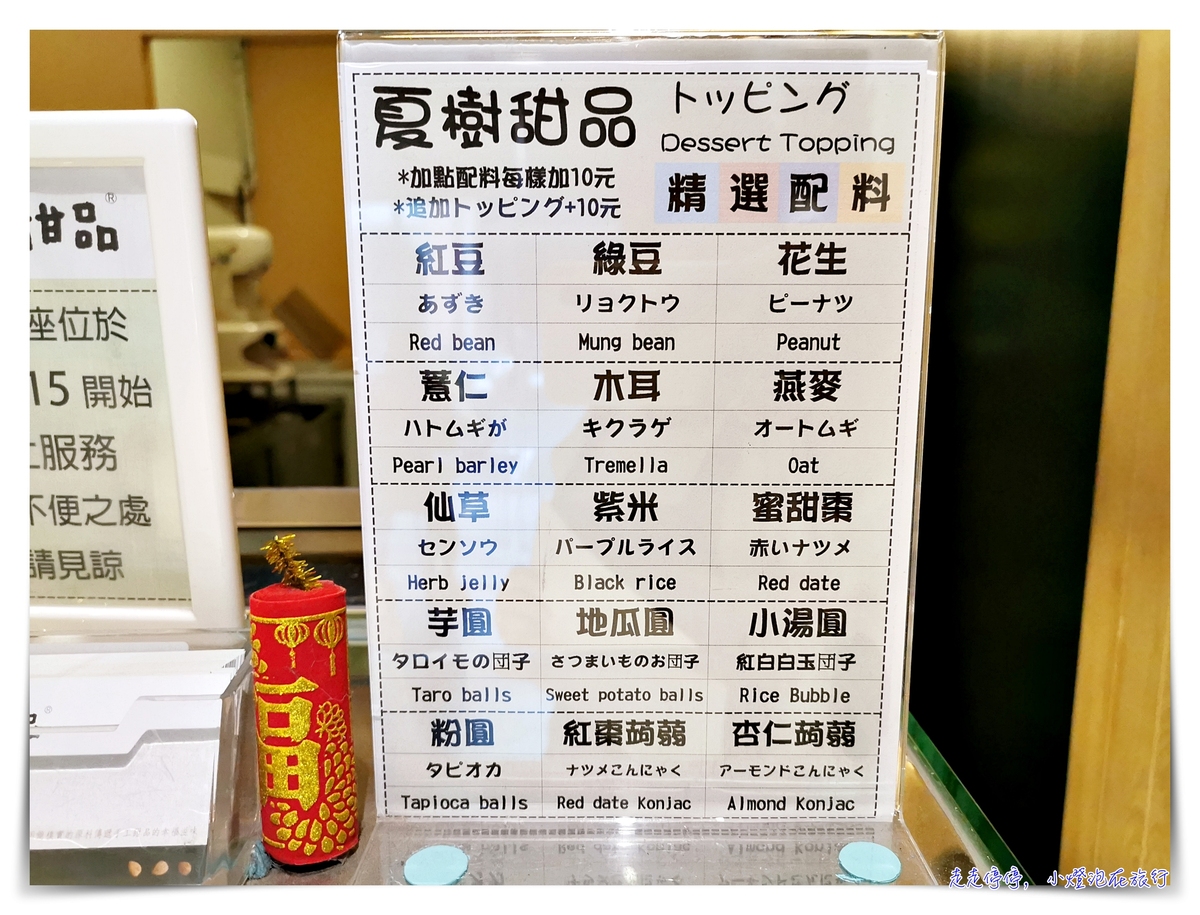 夏樹甜品
トッピング
Dessert Topping
*加點配料每樣加10元
*追加トッピング+10元
精選配料
紅豆 綠豆 花生
あずき リョクトウ ピーナツ
Red bean Mung bean Peanut
薏仁 木耳 燕麥
ハトムギが キクラゲ オートムギ
Pearl barley Tremella Oat
仙草 紫米 蜜甜棗
センソウ パープルライス 赤いナツメ
Herb jelly Black rice Red date
芋圓 地瓜圓 小湯圓
タロイモの団子 さつまいものお団子 紅白白玉団子
Taro balls Sweet potato balls Rice Bubble
粉圓 紅棗蒟蒻 杏仁蒟蒻
タピオカ ナツメこんにゃく アーモンドこんにゃく
Tapioca balls Red date Konjac Almond Konjac
甜品®
座位於
15 開始
服務
不便之處
請見諒
福
走走停停, 小燈泡在旅行